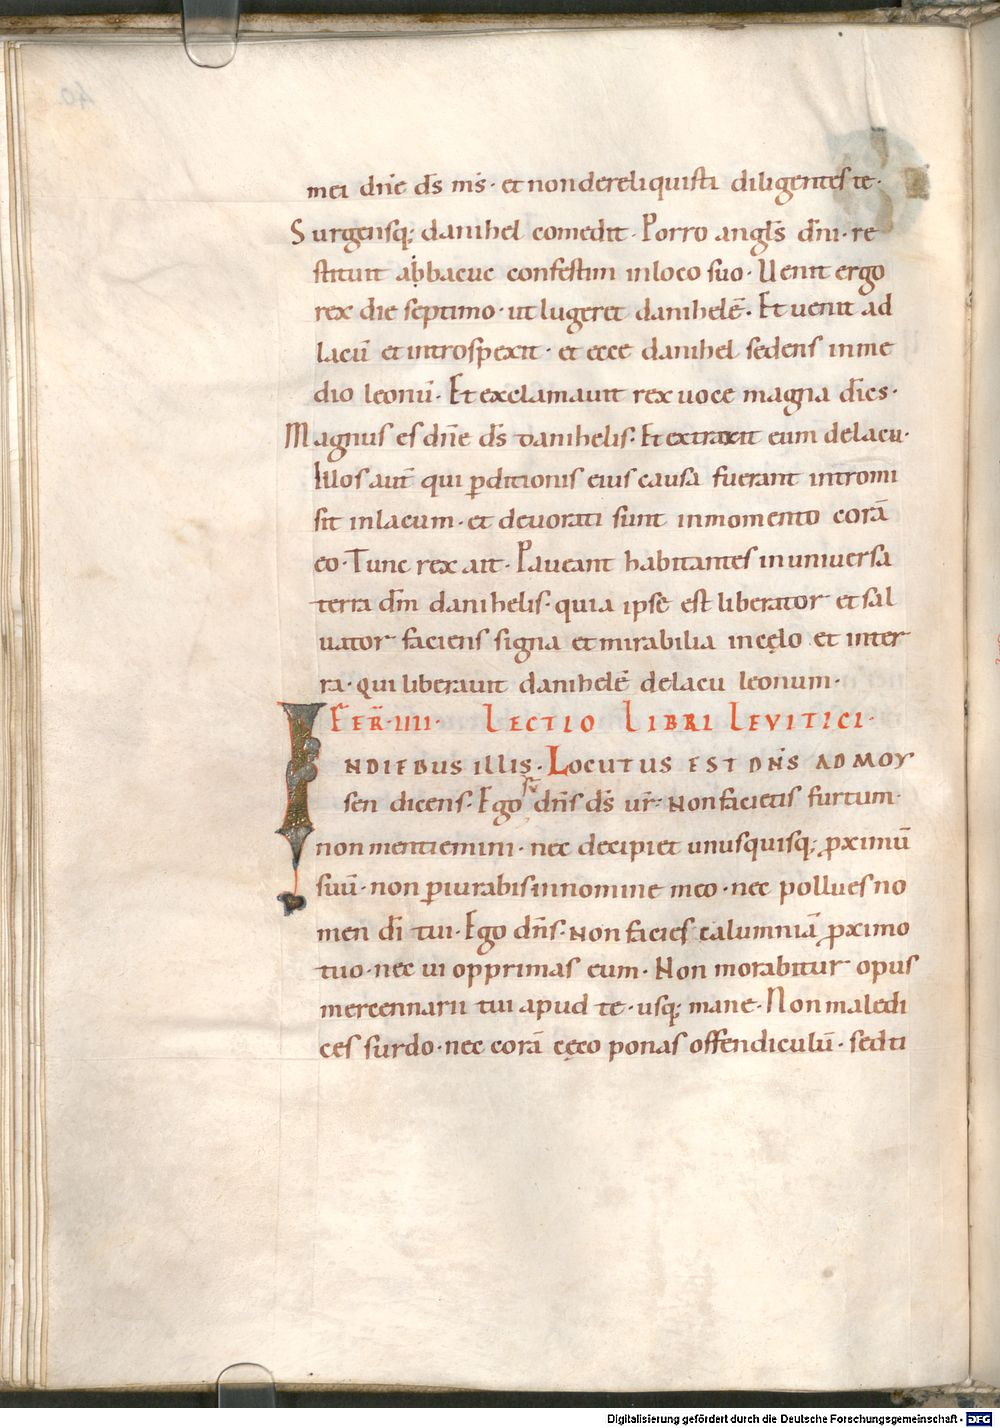 mei dn̄e d̄s m̄s · et non dereliquisti diligentes te ·
Surgensq; danihel comedit · Porro angl̄s dn̄i · re
stituit abbacuc confestim in loco suo · Uenit ergo
rex die septimo · ut lugeret danihelē · Et uenit ad
lacū et introspexit · et ecce danihel sedens in me
dio leonū · Et exclamauit rex uoce magna dic̄s ·
Magnus es dn̄e d̄s danihelis · Et extraxit eum de lacu ·
Illos aut̄ qui p̄ditionis eius causa fuerant intromi
sit in lacum · et deuorati sunt in momento corā
eo · Tunc rex ait · Paueant habitantes in uniuersa
terra dm̄ danihelis · quia ipse est liberator et sal
uator faciens signa et mirabilia in cęlo et in ter
ra · qui liberauit danihelē de lacu leonum ·
FER̄ · IIII · LECTIO LIBRI LEVITICI ·
IN DIEBUS ILLIS · LOCUTUS EST DN̄S AD MOY
sen dicens · Ego sū dn̄s d̄s ur̄ · Non facietis furtum ·
non mentiemini · nec decipiet unusquisq; p̄ximū
suū · non p̄iurabis in nomine meo · nec pollues no
men dī tui · Ego dn̄s · Non facies calumniā p̄ximo
tuo · nec ui opprimas eum · Non morabitur opus
mercennarii tui apud te · usq; mane · Non maledi
ces surdo · nec corā cęco ponas offendiculū · sed ti
Digitalisierung gefördert durch die Deutsche Forschungsgemeinschaft - DFG